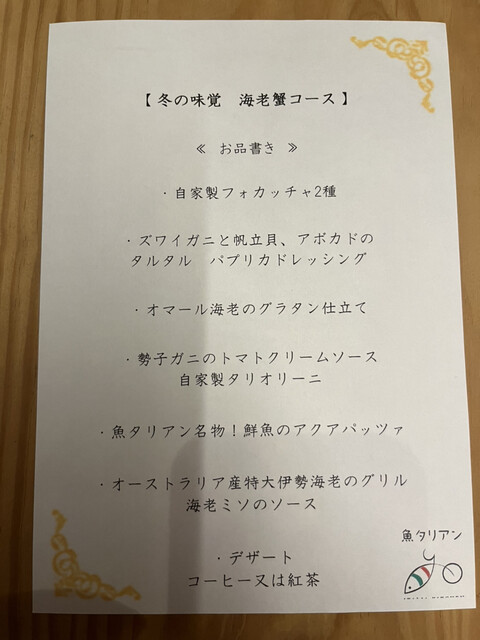 【 冬の味覚　海老蟹コース 】
≪　お品書き　≫
・自家製フォカッチャ2種
・ズワイガニと帆立貝、アボカドの
タルタル　パプリカドレッシング
・オマール海老のグラタン仕立て
・勢子ガニのトマトクリームソース
自家製タリオリーニ
・魚タリアン名物！鮮魚のアクアパッツァ
・オーストラリア産特大伊勢海老のグリル
海老ミソのソース
・デザート
コーヒー又は紅茶
魚タリアン